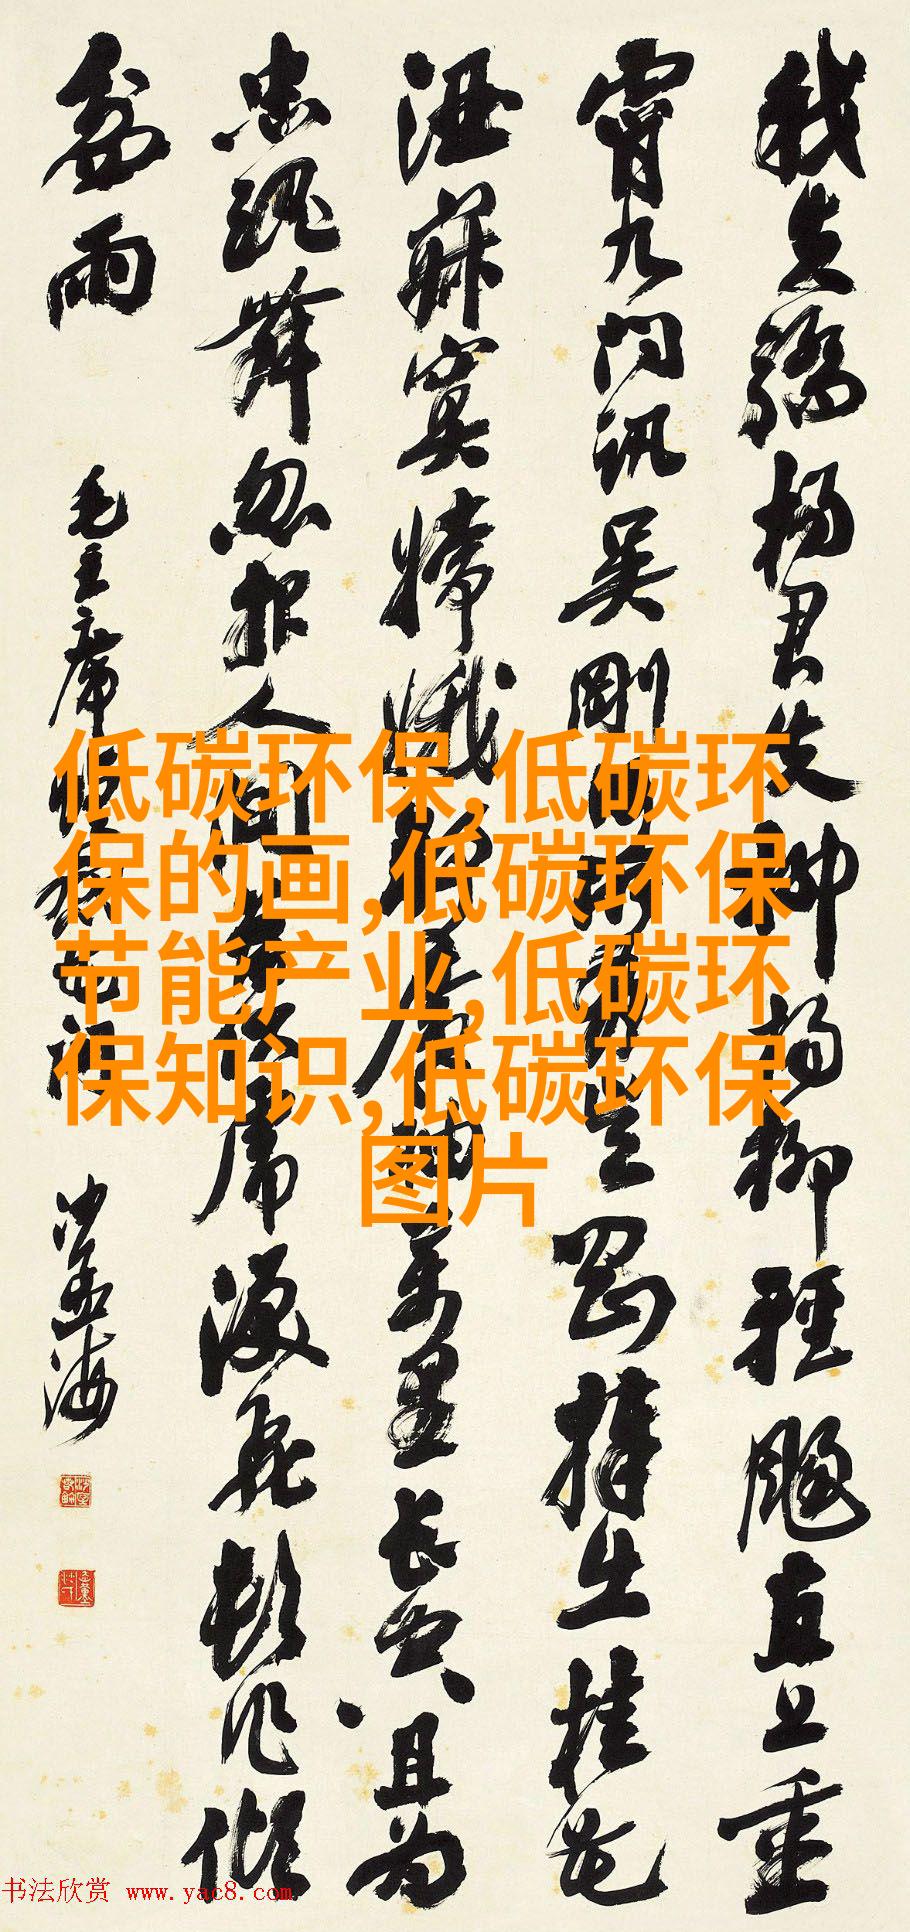 我失驕楊君失柳楊柳輕颺直上重
霄九問訊吳剛何所有吳剛捧出桂花
酒寂寞嫦娥舒廣袖萬里长空且為
忠魂舞忽报人间曾伏虎淚飛頓作傾
盆雨
毛主席
沙孟海
低碳环保,低碳环
保的画,低碳环保
节能产业,低碳环
保知识,低碳环保
图片
书法欣赏 www.yac8.com